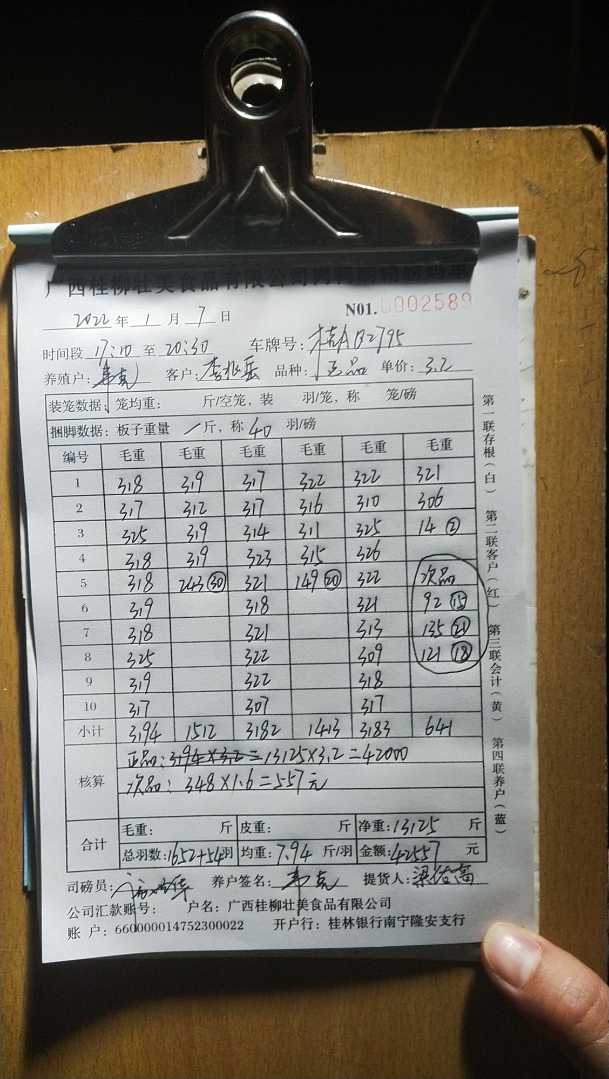 广西桂柳壮美食品有限公司肉鸭销磅码单
2022年1月7日 N01.0002589
时间段 17:10 至 20:30 车牌号: 桂A D2795
养殖户: 韦克 客户: 李兆岳 品种: 正品 单价: 3.2
装笼数据: 笼均重: 斤/空笼, 装 羽/笼, 称 笼/磅
捆脚数据: 板子重量 一斤, 称 40 羽/磅
编号 毛重 毛重 毛重 毛重 毛重 毛重
1 318 319 317 322 322 321
2 317 312 317 316 310 306
3 325 319 314 311 325 14 ②
4 318 319 323 315 326
5 318 243 ㉚ 321 149 ⑳ 322 次品
6 319 318 321 92 ⑮
7 318 321 313 135 ㉑
8 325 322 309 121 ⑱
9 319 322 318
10 317 307 317
小计 3194 1512 3182 1413 3183 641
核算 正品: 3194×3.2=13125×3.2=42000
次品: 348×1.6=557元
合计 毛重: 斤 皮重: 斤 净重: 13125 斤
总羽数: 1652+54羽 均重: 7.94 斤/羽 金额: 42557 元
司磅员: 养户签名: 韦克 提货人:
公司汇款账号: 户名: 广西桂柳壮美食品有限公司
账户: 660000014752300022 开户行: 桂林银行南宁隆安支行
第一联存根(白) 第二联客户(红) 第三联会计(黄) 第四联养户(蓝)